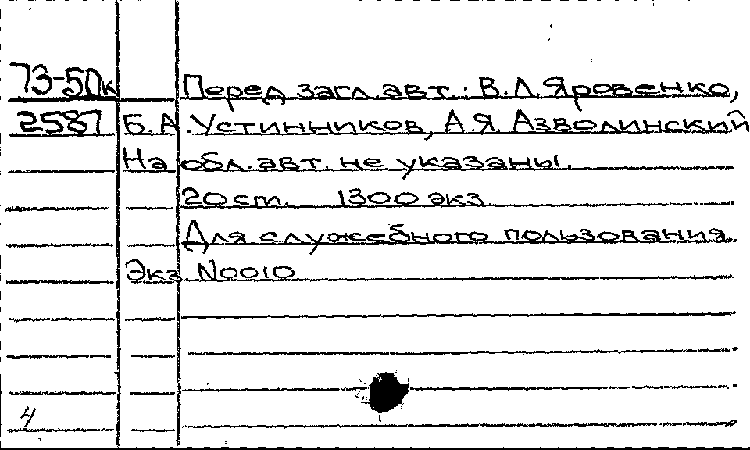 73-50к Перед загл. авт.: В.Л. Яровенко,
2587 Б.А. Устинников, А.Я. Азволинский
На обл. авт. не указаны.
20 ст. 1300 экз.
Для служебного пользования
Экз N0010
4